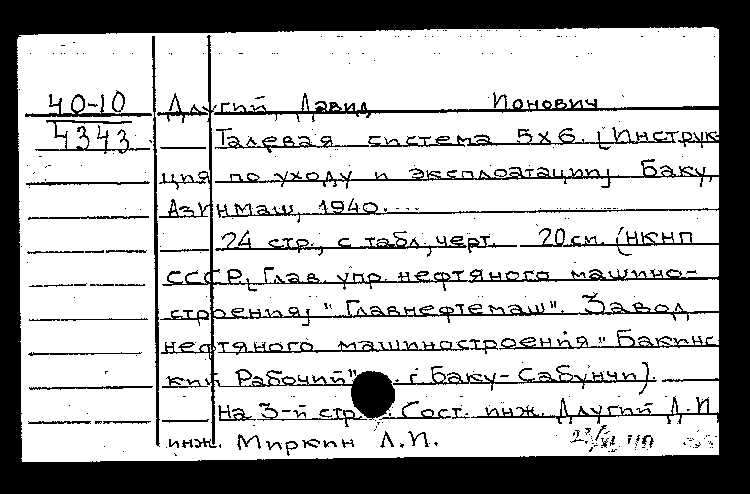 40-10
4343
Длугий, Давид Ионович
Талевая система 5х6. [Инструк
ция по уходу и эксплоатации] Баку,
Азинмаш, 1940....
24 стр., с табл, черт. 20 см. (НКНП
СССР, [Глав. упр. нефтяного машино-
строения] "Главнефтемаш". Завод
нефтяного машиностроения "Бакинс
кий Рабочий" г. Баку-Сабунчи).
На 3-й стр. Сост. инж. Длугий Д.И,
инж. Миркин Л.И.